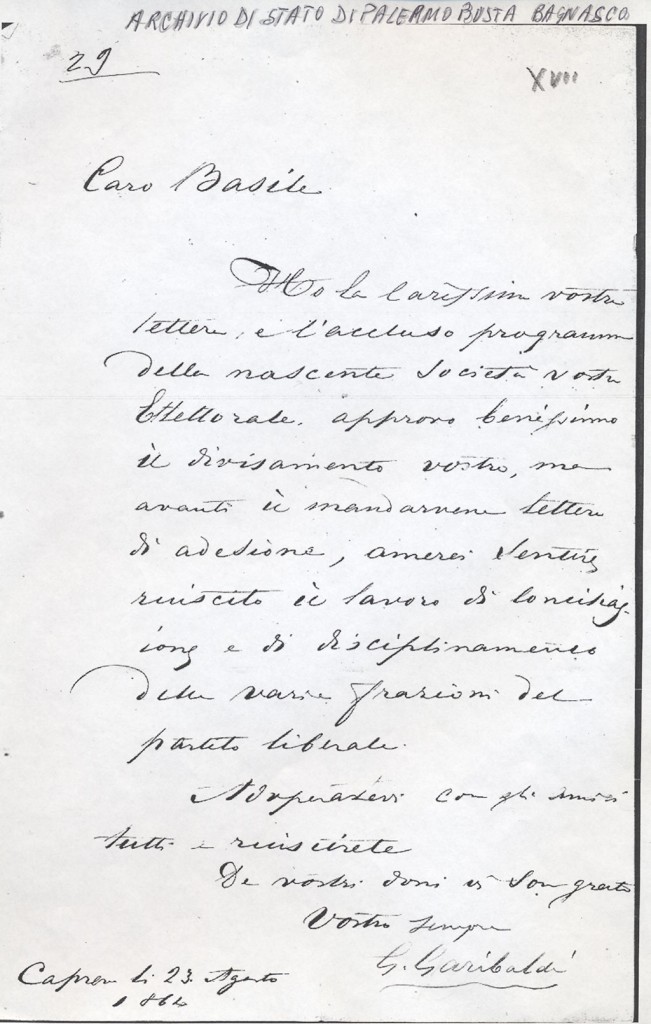 ARCHIVIO DI STATO DI PALERMO BUSTA BAGNASCO
29
XVII
Caro Basile
Ho la carissim vostra
lettera, e l'accluso programma
della nascente Società vostra
Elettorale. approvo benissimo
il divisamento vostro, ma
avanti di mandarvene lettera
di adesione, amerei sentire
riuscito il lavoro di conciliaz-
ione e di disciplinamento
delle varie frazioni del
partito liberale.
Adoperatevi con gli amici
tutti e riuscirete
De vostri doni vi son grato
Vostro sempre
G. Garibaldi
Caprera li 23. Agosto